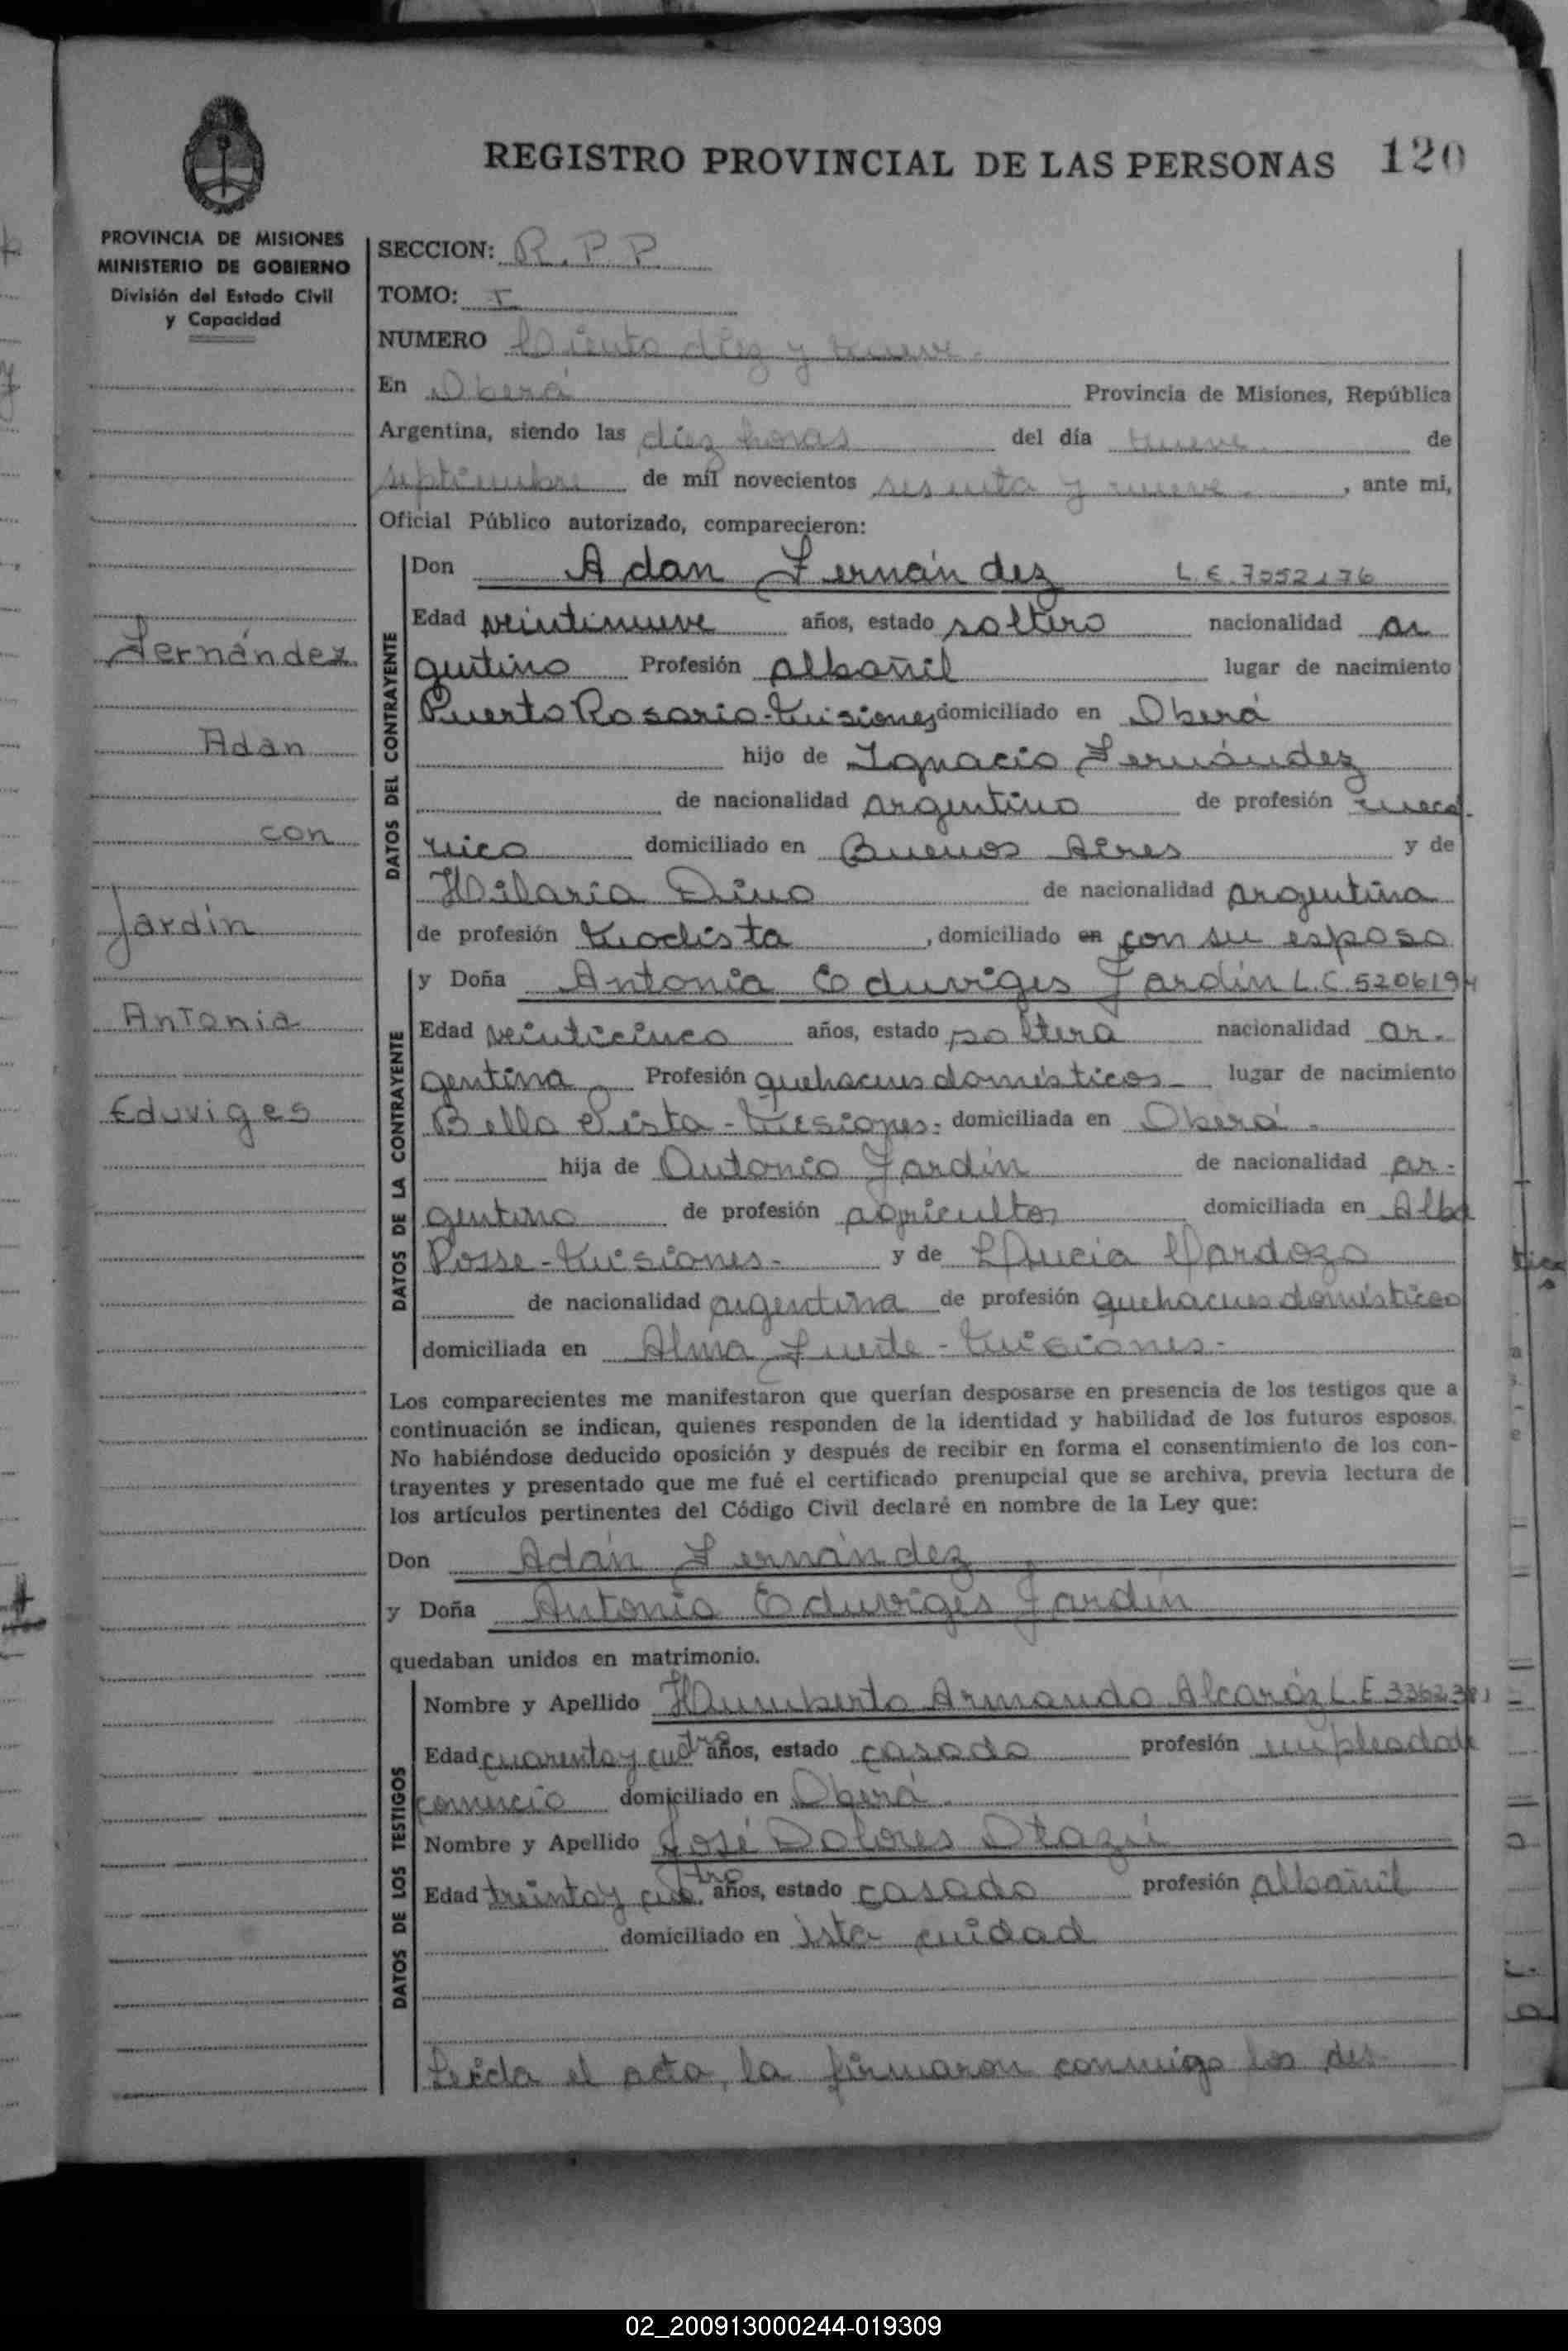 REGISTRO PROVINCIAL DE LAS PERSONAS 120
PROVINCIA DE MISIONES
MINISTERIO DE GOBIERNO
División del Estado Civil
y Capacidad
Fernández
Adan
con
Jardín
Antonia
Eduviges
SECCION: R.P.P
TOMO: I
NUMERO Ciento diez y nueve.
En Oberá Provincia de Misiones, República
Argentina, siendo las diez horas del día nueve de
septiembre de mil novecientos sesenta y nueve. , ante mi,
Oficial Público autorizado, comparecieron:
DATOS DEL CONTRAYENTE
Don Adan Fernández L.E. 7052176
Edad veintinueve años, estado soltero nacionalidad ar
gentino Profesión albañil lugar de nacimiento
Puerto Rosario-Misiones domiciliado en Oberá
hijo de Ignacio Fernández
de nacionalidad argentino de profesión mecá.
nico domiciliado en Buenos Aires y de
Hilaria Dino de nacionalidad argentina
de profesión modista , domiciliado en con su esposo
DATOS DE LA CONTRAYENTE
y Doña Antonia Eduviges Jardín L.C. 5206194
Edad veinticinco años, estado soltera nacionalidad ar-
gentina Profesión quehaceres domésticos lugar de nacimiento
Bella Vista - Misiones. domiciliada en Oberá.
hija de Antonio Jardín de nacionalidad ar-
gentino de profesión agricultor domiciliada en Alba
Posse - Misiones. y de Lucia Cardozo
de nacionalidad argentina de profesión quehaceres domésticos
domiciliada en Alma Fuerte - Misiones.-
Los comparecientes me manifestaron que querían desposarse en presencia de los testigos que a
continuación se indican, quienes responden de la identidad y habilidad de los futuros esposos.
No habiéndose deducido oposición y después de recibir en forma el consentimiento de los con-
trayentes y presentado que me fué el certificado prenupcial que se archiva, previa lectura de
los artículos pertinentes del Código Civil declaré en nombre de la Ley que:
Don Adán Fernández
y Doña Antonia Eduviges Jardín
quedaban unidos en matrimonio.
DATOS DE LOS TESTIGOS
Nombre y Apellido Humberto Armando Alcaráz L.E
Edad cuarenta y cuatro años, estado casado profesión empleado de
comercio domiciliado en Oberá.
Nombre y Apellido José Dolores Otazú
Edad treinta y cuatro años, estado casado profesión albañil
domiciliado en ista ciudad
Leída el acta, la firmaron conmigo los des-
02_200913000244-019309